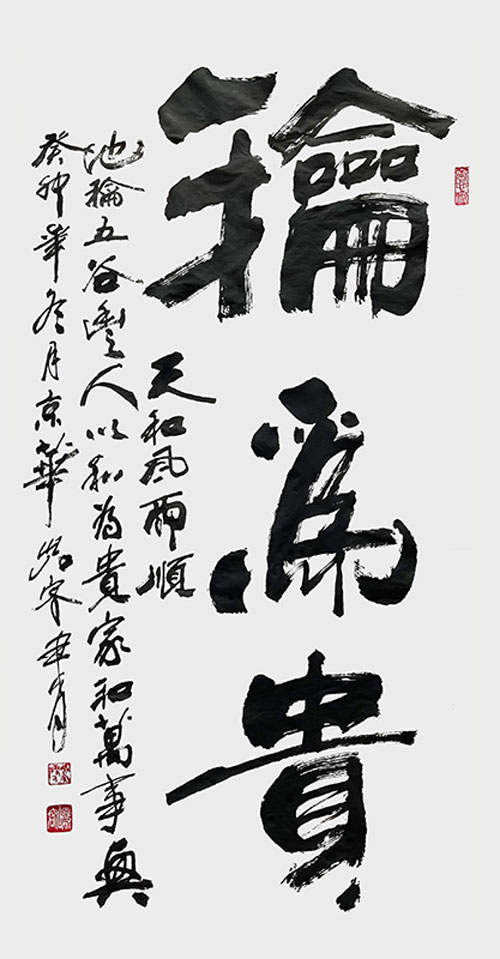 龢為貴
天和風雨順
地龢五谷豐人以和為貴家和萬事興
癸卯年冬月京華